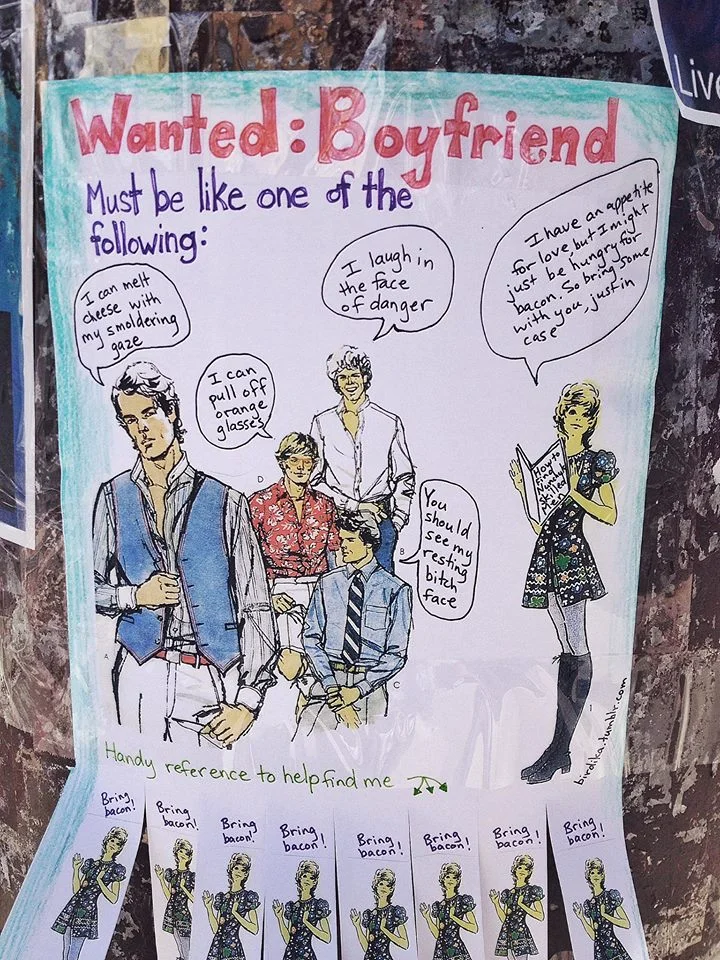 Live
Wanted: Boyfriend
Must be like one of the
following:
I can melt
cheese with
my smoldering
gaze
I can
pull off
orange
glasses
I laugh in
the face
of danger
I have an appetite
for love, but I might
just be hungry for
bacon. So bring some
with you, just in
case
You
should
see my
resting
bitch
face
How to
A
B
C
D
birdika.tumblr.com
Handy reference to help find me
Bring
bacon!
Bring
bacon!
Bring
bacon!
Bring
bacon!
Bring
bacon!
Bring
bacon!
Bring
bacon!
Bring
bacon!